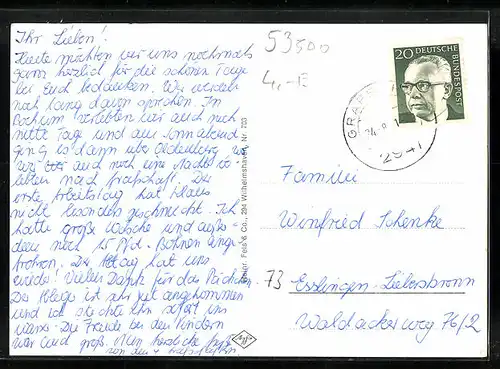 Ihr Lieben!
Heute möchten wir uns nochmals
ganz herzlich für die schönen Tage
bei Euch bedanken. Wir werden
noch lang davon sprechen. In
Bochum verlebten wir auch noch
nette Tage und am Sonnabend
ging es dann über Oldenburg wo
wir auch noch eine
nach Grafschaft. Der
erste Arbeitstag hat Klaus
nicht besonders geschmeckt. Ich
hatte große Wäsche und außer-
dem noch 15 Pfd. Bohnen einge-
froren. Der Alltag hat uns
wieder! Vielen Dank für das Päckchen.
Der Ableger ist sehr gut angekommen
und ich steckte ihn sofort ins
Wasser. Die Freude bei den Kindern
war auch groß. Nun herzliche Grüße
von den
53500
4,-E
20 DEUTSCHE
BUNDESPOST
2941
Fess & Co., 294 Wilhelmshaven, Nr. 703
Familie
Winfried Schenke
73 Esslingen-Liebersbronn
Waldackerweg 76/2